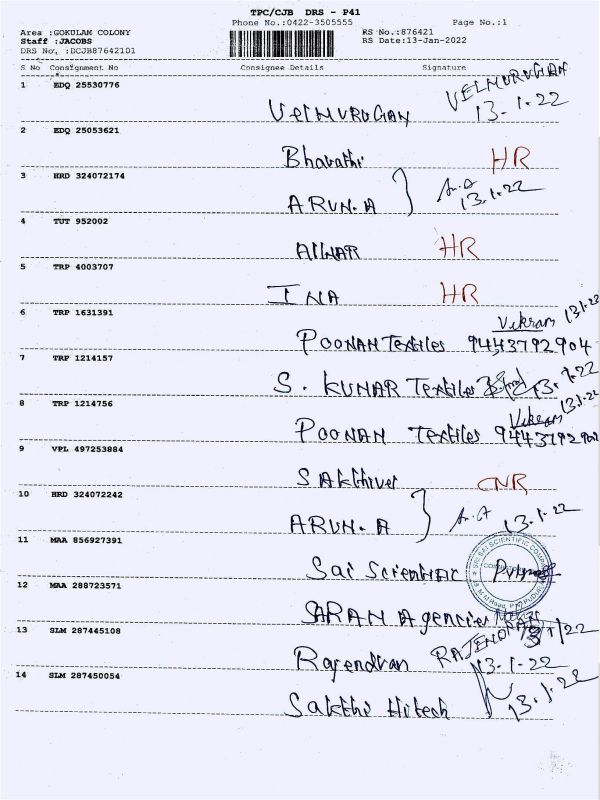 TPC/CJB DRS - P41
Phone No.:0422-3505555 Page No.:1
Area :GOKULAM COLONY RS No.:876421
Staff :JACOBS RS Date:13-Jan-2022
DRS No. :DCJB87642101
S No Consignment No Consignee Details Signature
1 EDQ 25530776 VELMURUGAN
VELMURUGAN 13.1.22
2 EDQ 25053621
Bharathi HR
3 HRD 324072174
ARUN.A A.A 13.1.22
4 TUT 952002
AlWAR HR
5 TRP 4003707
INA HR
6 TRP 1631391 Vikram 13.1.22
POONAM Textiles 9443792904
7 TRP 1214157
S. KUMAR Textiles 13.1.22
8 TRP 1214756 Vikram 13.1.22
POONAM Textiles 9443792904
9 VPL 497253884
Sakthivel CNR
10 HRD 324072242
ARUN.A A.A 13.1.22
11 MAA 856927391
Sai Scientific
12 MAA 288723571
SARAN Agencies
13 SLM 287445108 RAJENDRAN
Rajendran 13.1.22
14 SLM 287450054
Sakthi Hitech 13.1.22